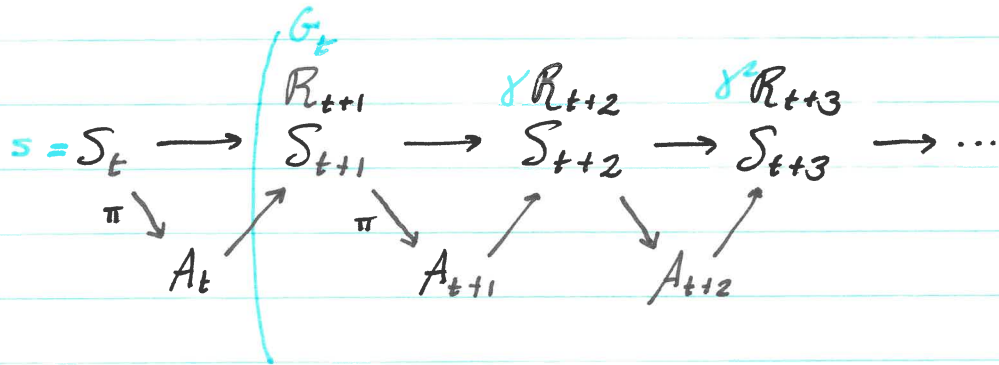 G_t
R_{t+1} γR_{t+2} γ²R_{t+3}
s = S_t → S_{t+1} → S_{t+2} → S_{t+3} → ...
π π
A_t A_{t+1} A_{t+2}